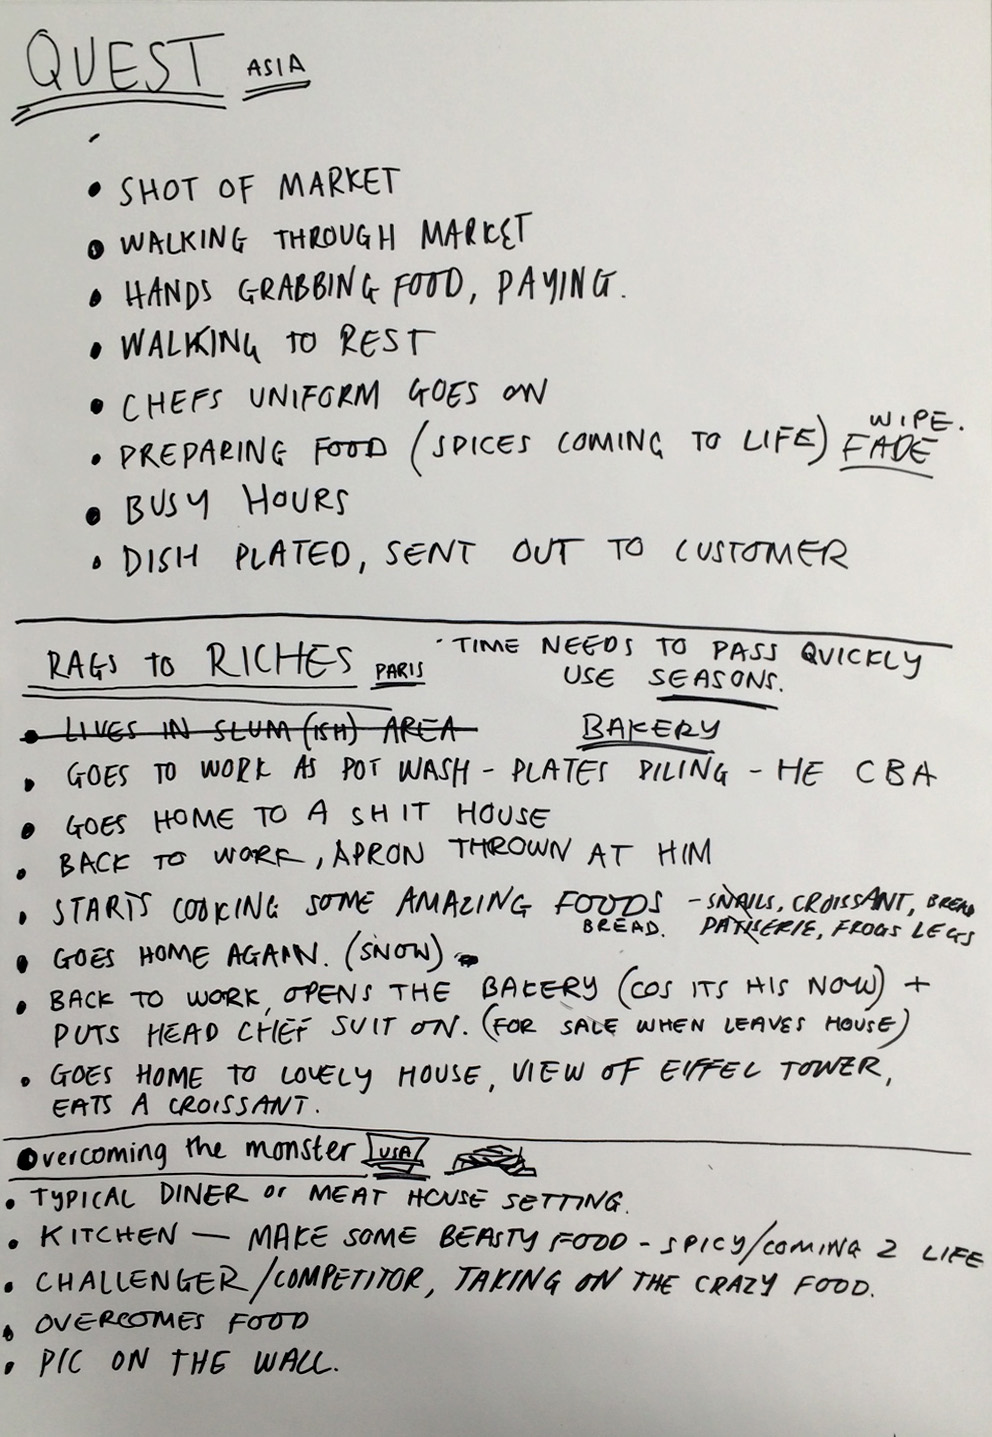 QUEST ASIA
• SHOT OF MARKET
• WALKING THROUGH MARKET
• HANDS GRABBING FOOD, PAYING.
• WALKING TO REST
• CHEFS UNIFORM GOES ON
WIPE.
• PREPARING FOOD (SPICES COMING TO LIFE) FADE
• BUSY HOURS
• DISH PLATED, SENT OUT TO CUSTOMER
RAGS to RICHES PARIS
• TIME NEEDS TO PASS QUICKLY
USE SEASONS.
• LIVES IN SLUM (ISH) AREA
BAKERY
• GOES TO WORK AS POT WASH - PLATES PILING - HE CBA
• GOES HOME TO A SHIT HOUSE
• BACK TO WORK, APRON THROWN AT HIM
• STARTS COOKING SOME AMAZING FOODS - SNAILS, CROISSANT, BREAD
BREAD. PATISERIE, FROGS LEGS
• GOES HOME AGAIN. (SNOW)
• BACK TO WORK, OPENS THE BAKERY (COS ITS HIS NOW) +
PUTS HEAD CHEF SUIT ON. (FOR SALE WHEN LEAVES HOUSE)
• GOES HOME TO LOVELY HOUSE, VIEW OF EIFFEL TOWER,
EATS A CROISSANT.
Overcoming the monster USA
• TYPICAL DINER or MEAT HOUSE SETTING.
• KITCHEN — MAKE SOME BEASTY FOOD - SPICY/COMING 2 LIFE
• CHALLENGER/COMPETITOR, TAKING ON THE CRAZY FOOD.
• OVERCOMES FOOD
• PIC ON THE WALL.